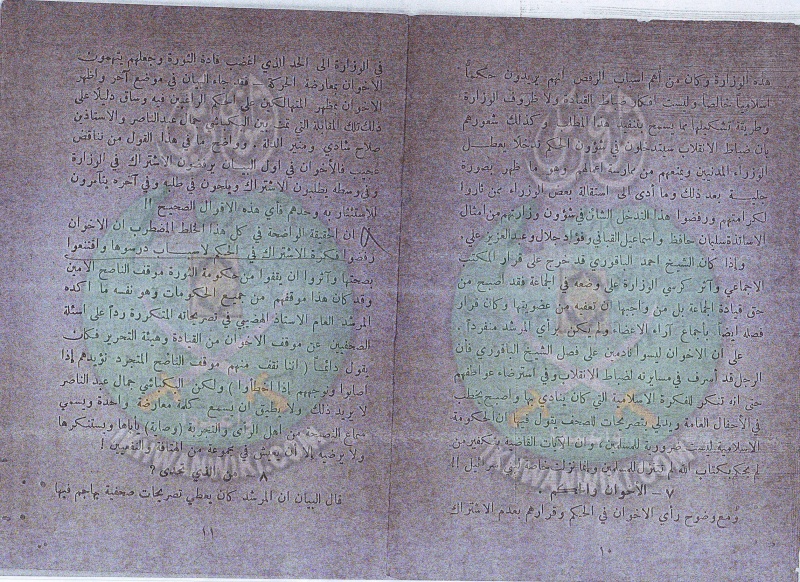 هذه الوزارة وكان من أهم أسباب الرفض أنهم يريدون حكماً
اسلامياً خالصاً وليست أفكار ضباط القيادة ولا ظروف الوزارة
وطريقة تشكيلها بما يسمح بتنفيذ هذا المطلب . كذلك شعورهم
بان ضباط الانقلاب سيتدخلون في شؤون الحكم تدخلاً يعطل
الوزراء المدنيين ويمنعهم من ممارسة أعمالهم وهو ما ظهر بصورة
جلية بعد ذلك وما أدى الى استقالة بعض الوزراء ممن ثاروا
لكرامتهم ورفضوا هذا التدخل الشائن في شؤون وزارتهم من أمثال
الاساتذة سليمان حافظ واسماعيل القباني وفؤاد جلال وعبد العزيز علي .
وإذا كان الشيخ احمد الباقوري قد خرج على قرار المكتب
الاجماعي وآثر كرسي الوزارة على وضعه في الجماعة فقد أصبح من
حق قيادة الجماعة بل من واجبها ان تعفيه من عضويتها وكان قرار
فصله ايضاً بأجماع آراء الاعضاء ولم يكن برأي المرشد منفرداً .
على أن الاخوان ليسوا نادمين على فصل الشيخ الباقوري فأن
الرجل قد أسرف في مسايرته لضباط الانقلاب وفي استرضاء عواطفهم
حتى انه تنكر للفكرة الاسلامية التي كان ينادي بها وأصبح يخطب
في الأحفال العامة ويدلي بتصريحات للصحف يقول فيها ان الحكومة
الاسلامية ليست ضرورية للمسلمين ، وان الآيات القاضية بتكفير من
لم يحكم بكتاب الله لم تنزل للمسلمين وإنما نزلت خاصة لبني اسرائيل !!
٧ – الاخوان والحكم :
ومع وضوح رأي الاخوان في الحكم وقرارهم بعدم الاشتراك
١٠
في الوزارة الى الحد الذي اغضب قادة الثورة وجعلهم يتهمون
الاخوان بمعارضة الحركة – فقد جاء البيان في موضع آخر واظهر
الاخوان بمظهر المتهالكين على الحكم الراغبين فيه وساق دليلاً على
ذلك تلك المقابلة التي تمت بين البكباشي جمال عبد الناصر والاستاذين
صلاح شادي ومنير الدلة . وواضح ما في هذا القول من تناقض
عجيب فالأخوان في اول البيان يرفضون الاشتراك في الوزارة
وفي وسطه يطلبون الاشتراك ويلحون في طلبه وفي آخره يتآمرون
للاستئثار به وحدهم فأي هذه الاقوال الصحيح !!
ان الحقيقة الواضحة في كل هذا الخلط المضطرب ان الاخوان
رفضوا فكرة الاشتراك في الحكم لاسباب درسوها واقتنعوا
بصحتها وآثروا ان يقفوا من حكومة الثورة موقف الناصح الامين
وقد كان هذا موقفهم من جميع الحكومات وهو نفسه ما أكده
المرشد العام الاستاذ الهضيبي في تصريحاته المتكررة رداً على أسئلة
الصحفيين عن موقف الاخوان من القيادة وهيئة التحرير فكان
يقول دائماً ( اننا نقف منهم موقف الناصح المتجرد نؤيدهم إذا
اصابوا ونوجههم إذا أخطأوا ) ولكن البكباشي جمال عبد الناصر
لا يريد ذلك ولا يطيق ان يسمع كلمة معارضة واحدة ويسمي
سماع النصح من أهل الرأي والتجربة (وصاية) يأباها ويستنكرها
ولا يرضيه إلا أن يعيش في مجموعة من المنافقة والتقديس !
٨ – من الذي تحدى ؟
قال البيان ان المرشد كان يعطي تصريحات صحفية يهاجم فيها
١١
IKHWANWIKI.COM
IKHWANWIKI.COM